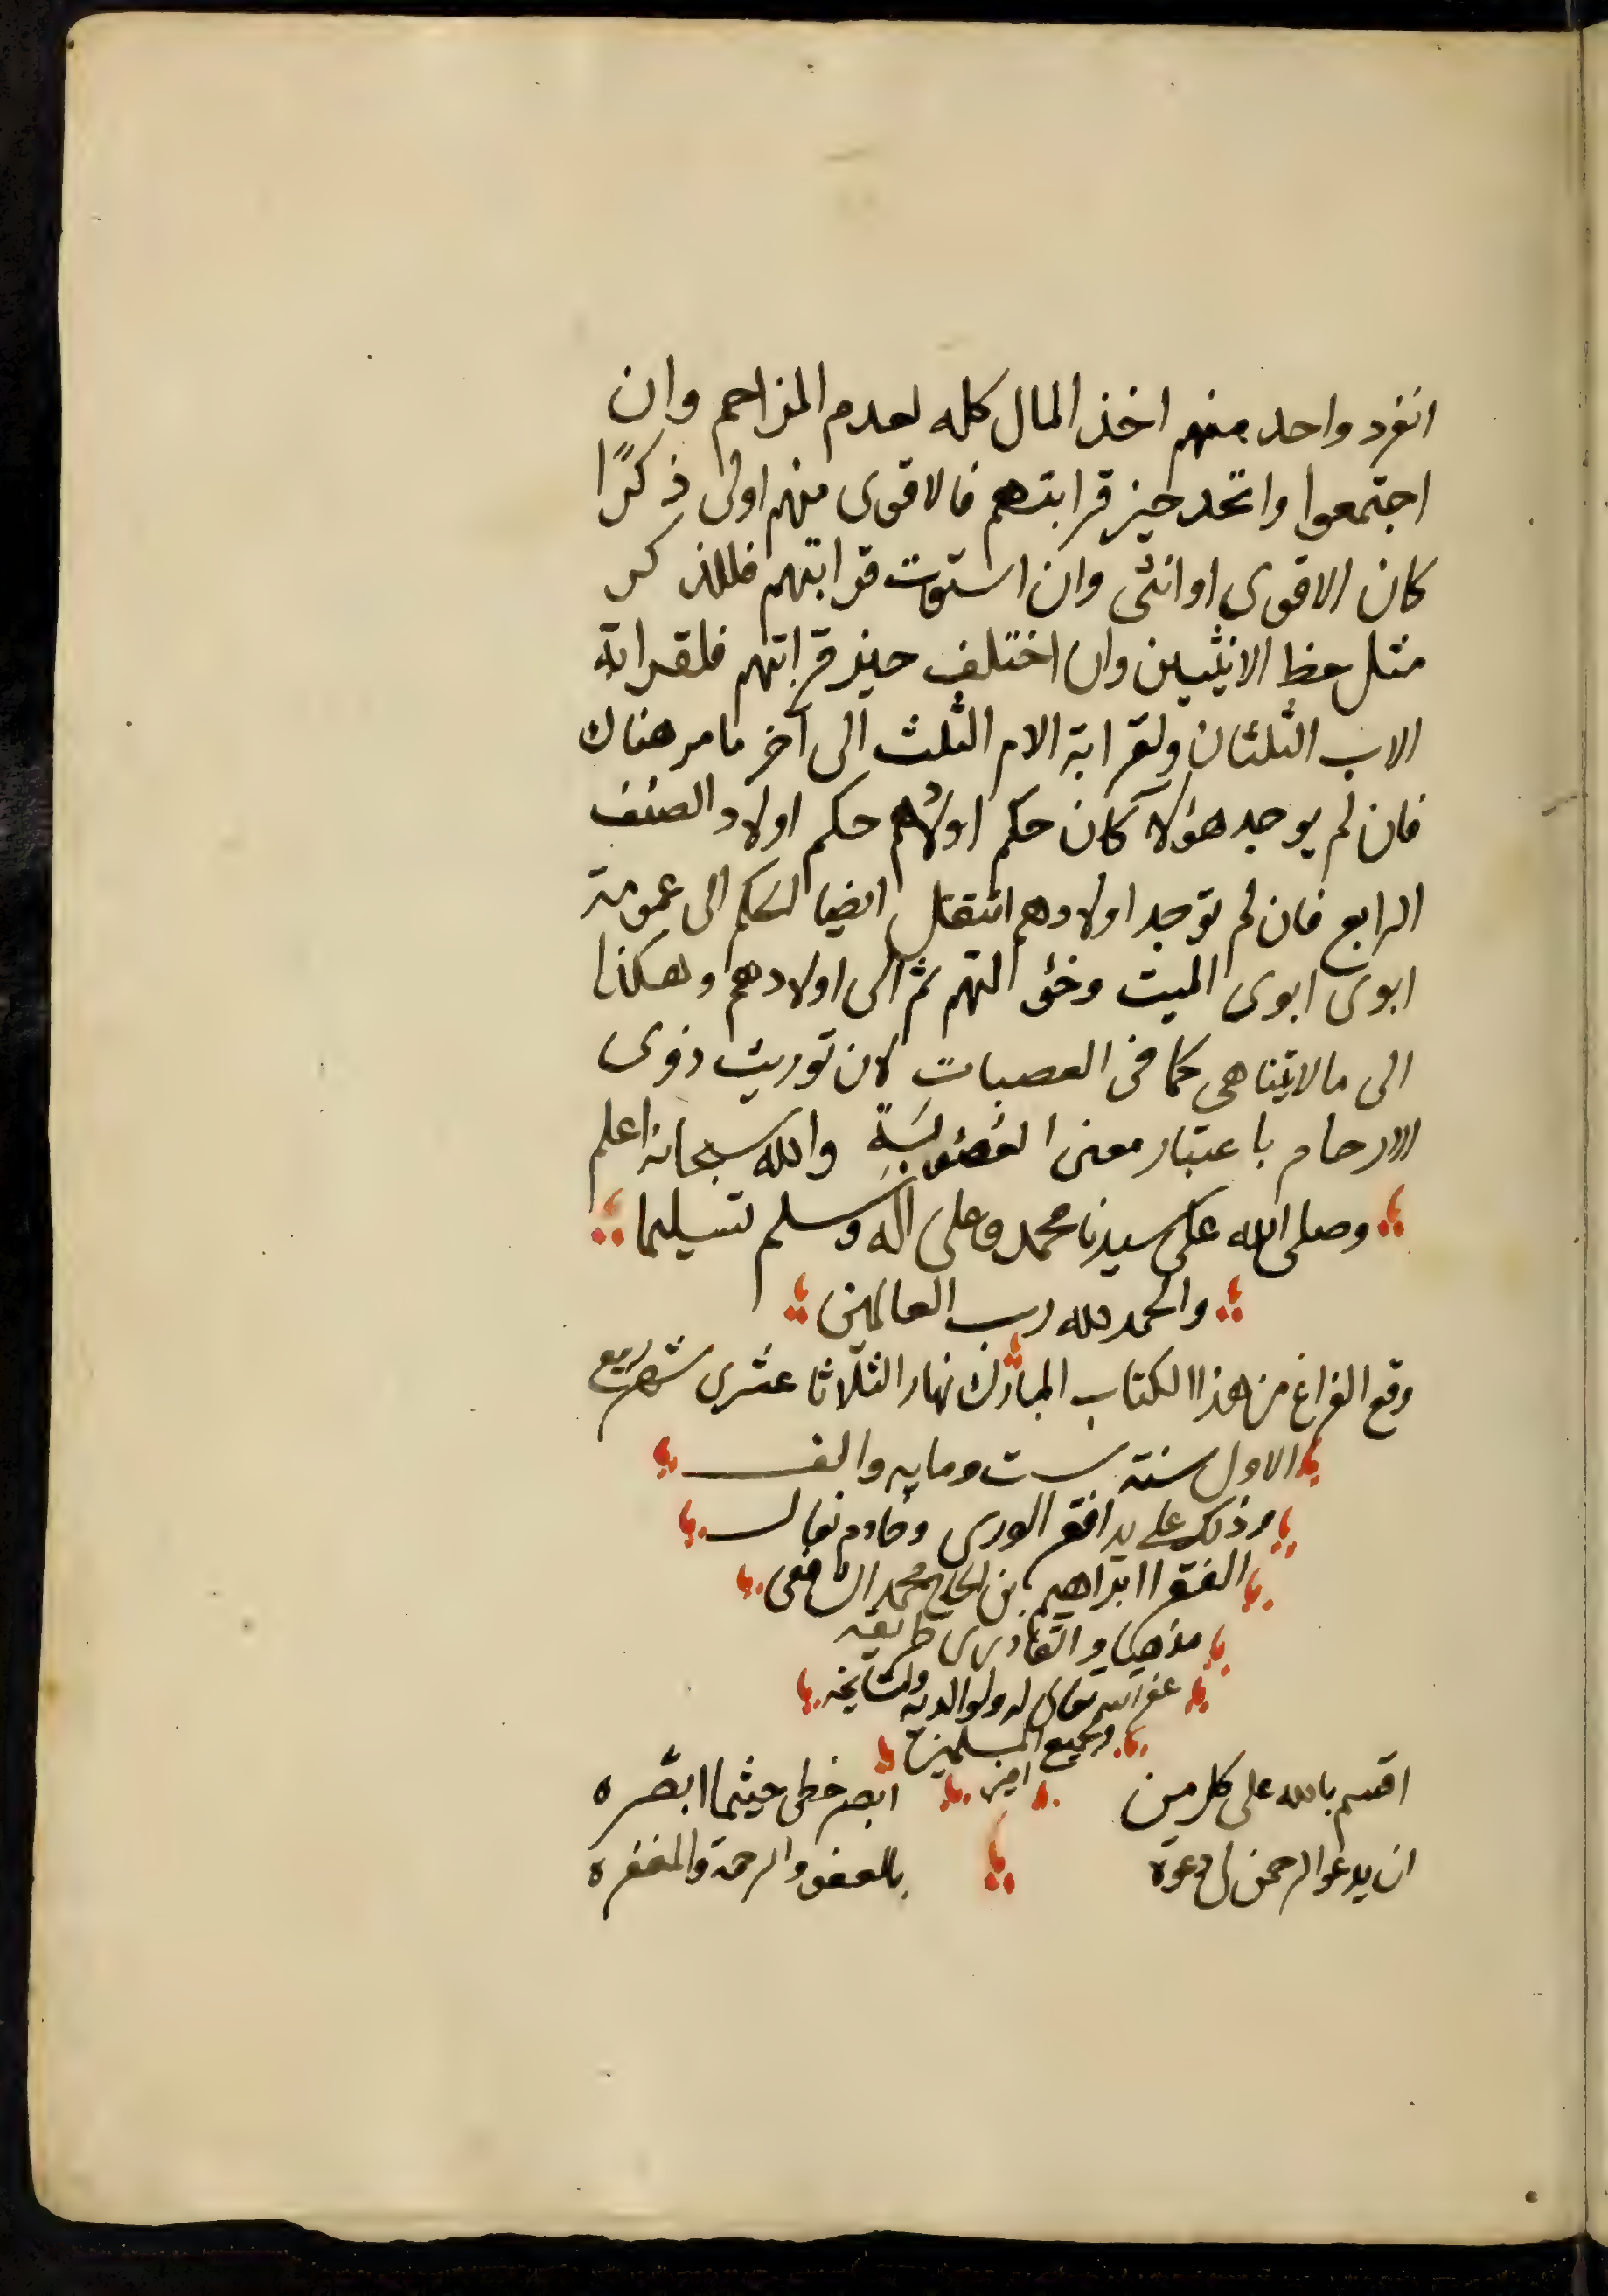 انفرد واحد منهم اخذ المال كله لعدم المزاحم وان
اجتمعوا واتحد حيز قرابتهم فالاقوى منهم اولى ذكرًا
كان الاقوى او انثى وان استوت قرابتهم فللذكر
مثل حظ الانثيين وان اختلف حيز قرابتهم فلقرابة
الاب الثلثان ولقرابة الام الثلث الى آخر ما مر هناك
فان لم يوجد هؤلاء كان حكم اولادهم حكم اولاد الصنف
الرابع فان لم توجد اولادهم انتقل ايضا الحكم الى عمومة
ابوى ابوى الميت وخؤلتهم ثم الى اولادهم وهكذا
الى مالا يتناهى كما فى العصبات لان توريث ذوى
الارحام باعتبار معنى العصوبة والله سبحانه اعلم
وصلى الله على سيدنا محمد وعلى آله وسلم تسليما
والحمد لله رب العالمين
وقع الفراغ من هذا الكتاب المبارك نهار الثلاثا عشرى شهر ربيع
الاول سنة ست ومايه والف
وذلك على يد افقر الورى وخادم نعال
الفقرا ابراهيم بن الحاج محمد الشافعى
مذهبا و القادرى طريقه
غفر الله تعالى له ولوالديه ولمشايخه
ولجميع المسلمين
امين
اقسم بالله على كل من ابصر خطى حيثما ابصره
ان يدعو الرحمن لى دعوة بالعفو والرحمة والمغفره